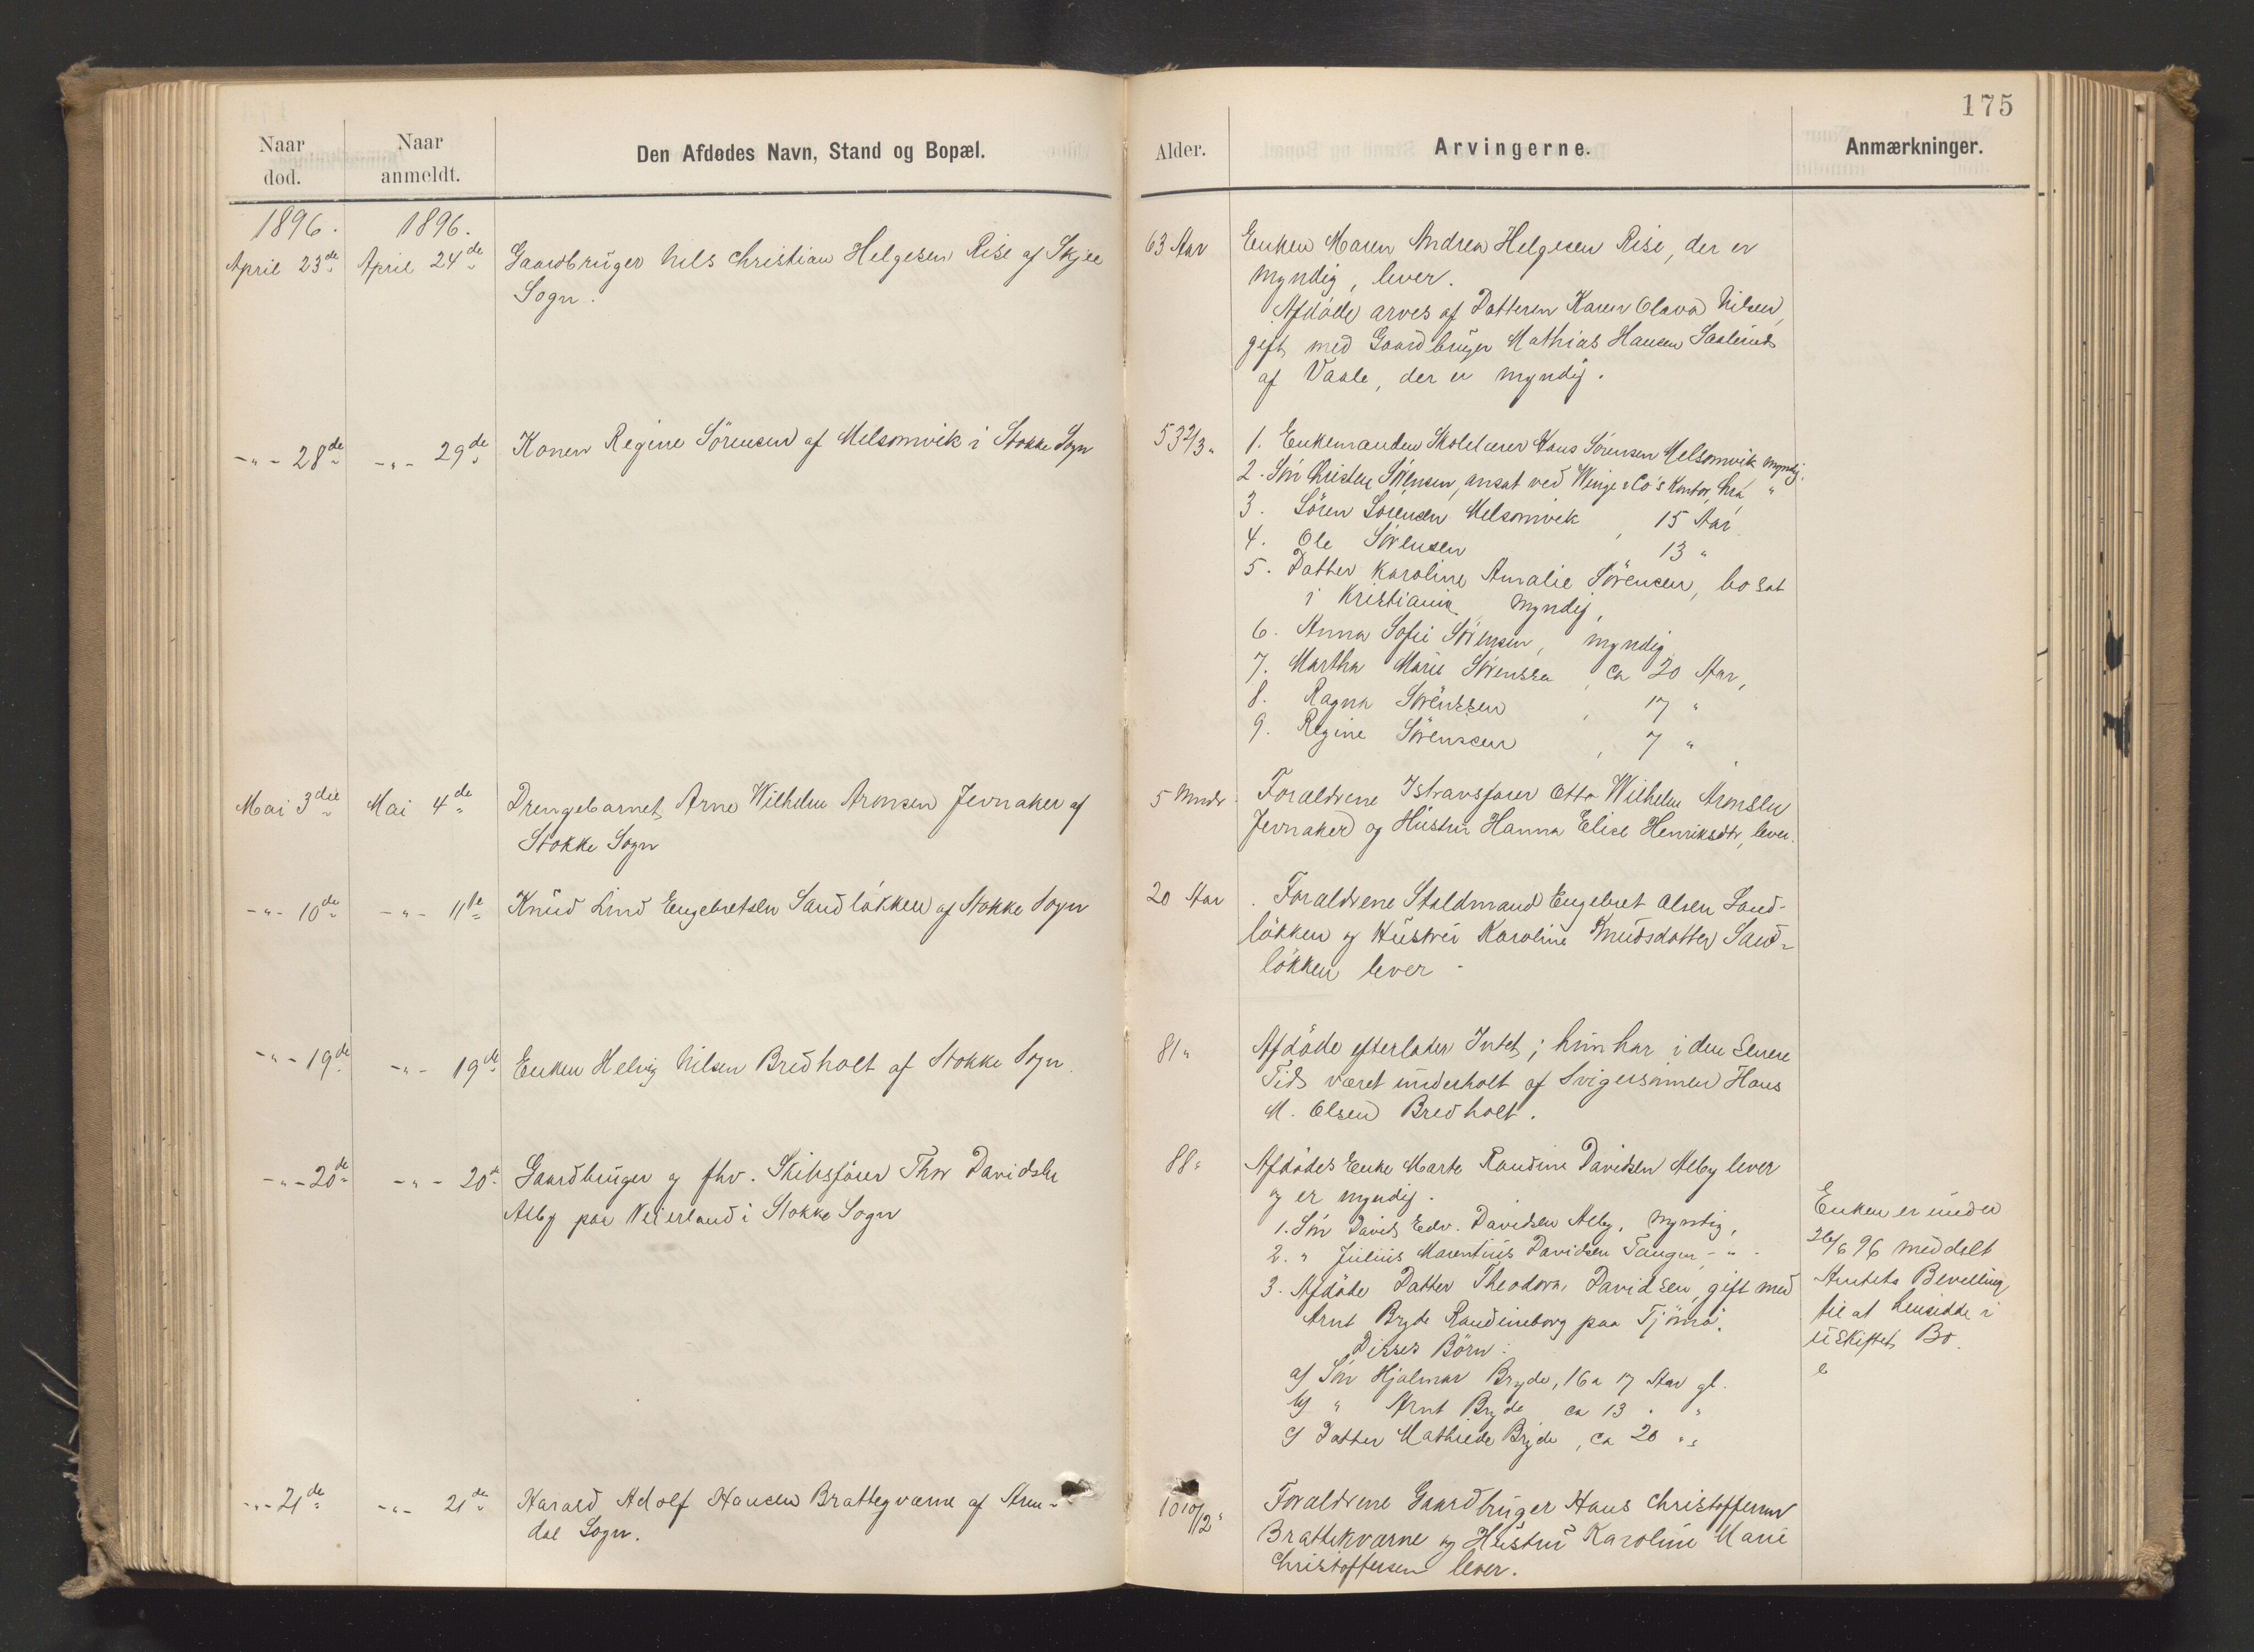 175
Naar død.
Naar anmeldt.
Den Afdødes Navn, Stand og Bopæl.
Alder.
Arvingerne.
Anmærkninger.
1896. 1896.
April 23de April 24de Gaardbruger Nils Christian Helgesen Rise af Skjee
Sogn.
63 Aar Enken Maren Andrea Helgesen Rise, der er
myndig, lever.
Afdøde arves af Datteren Karen Olava Nilsen,
gift med Gaardbruger Mathias Hansen
af Vaale, der er myndig.
-"- 28de -"- 29de Konen Regine Sörensen af Melsomvik i Stokke Sogn
53 2/3 " 1. Enkemanden Skolelærer Hans Sörensen Melsomvik, myndig.
2. Sön Christen Sörensen, ansat ved Winge & Co's Kontor, Chra, "
3. Sören Sörensen Melsomvik, 15 Aar
4. Ole Sörensen 13 "
5. Datter Karoline Amalie Sörensen, bosat
i Kristiania, myndig,
6. Anna Sofie Sörensen, myndig
7. Martha Marie Sörensen, ca 20 Aar,
8. Ragna Sörenssen, 17 "
9. Regine Sörenssen, 7 "
Mai 3die Mai 4de Drengebarnet Arne Wilhelm Aronsen Jevnaker af
Stokke Sogn
5 Mndr. Forældrene Ishavsfarer Otto Wilhelm Aronsen
Jevnaker og Hustru Hanna Elise Henriksdtr, lever.
-"- 10de -"- 11te Knud Lind Engebretsen Sandløkken af Stokke Sogn
20 Aar. Forældrene Staldmand Engebret Olsen Sand-
løkken og Hustru Karoline Knudsdatter Sand-
løkken lever -
-"- 19de -"- 19de Enken Helvig Nilsen Bredholt af Stokke Sogn.
81 " Afdøde efterlader Intet; hun har i den senere
Tid været underholt af Svigersønnen Hans
M. Olsen Bredholt.
-"- 20de -"- 20de Gaardbruger og fhv. Skibsfører Thor Davidsen
Alby paa Veierland i Stokke Sogn
88 " Afdødes Enke Marte Randine Davidsen Alby lever
og er myndig.
1. Sön David Edv. Davidsen Alby, myndig,
2. " Julius Marentius Davidsen Tangen, - " -
3. Afdøde Datter Theodora Davidsen, gift med
Arnt Bryde Randineborg paa Tjömö.
Disses Börn:
a) Sön Hjalmar Bryde, 16 a 17 Aar gl.
b) " Arnt Bryde ca 13 " "
c) Datter Mathilde Bryde, ca 20 " "
Enken er under
26/6 96 meddelt
Amtets Bevilling
til at hensidde i
uskiftet Bo.
-"- 21de -"- 21de Harald Adolf Hansen Brattegværne af Arn-
dal Sogn.
10 10/12 " Forældrene Gaardbruger Hans Christoffersen
Brattekværne og Hustru Karoline Marie
Christoffersen lever.